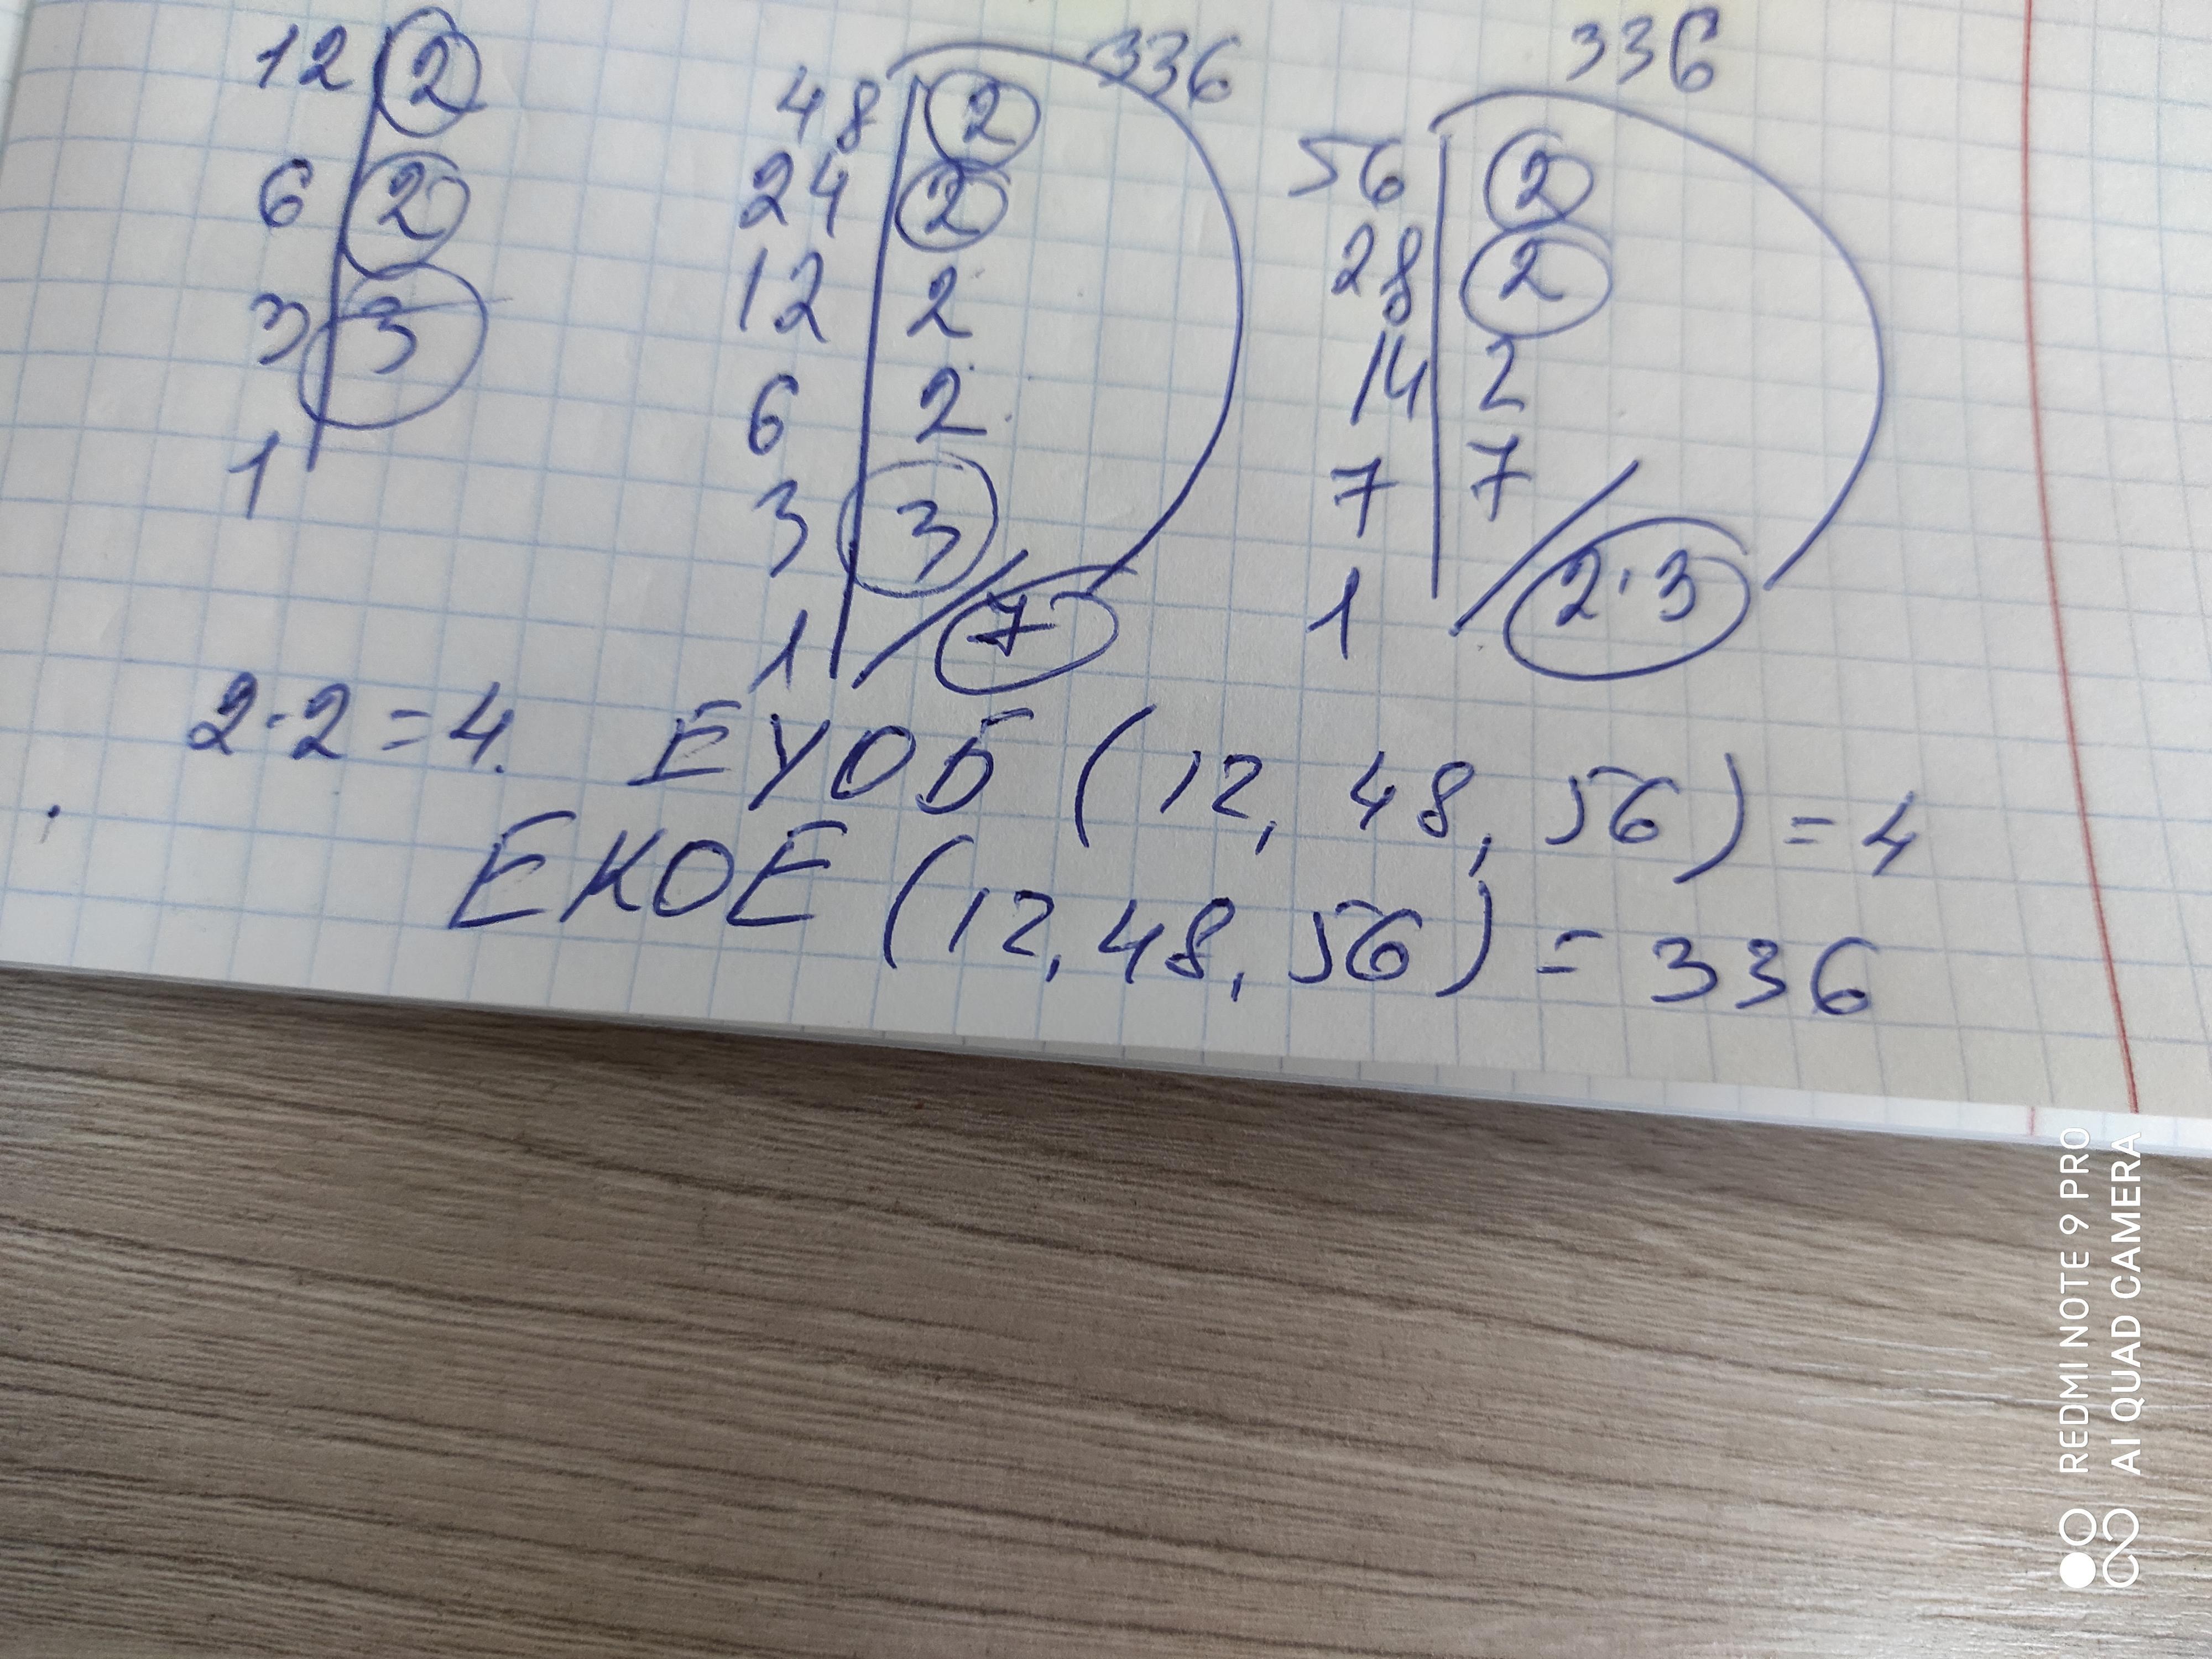 336 336
12 2 48 2 56 2
6 2 24 2 28 2
3 3 12 2 14 2
1 6 2 7 7
3 3 1 2·3
1 7
2·2=4. ЕҮОБ (12, 48, 56) = 4
ЕКОЕ (12, 48, 56) = 336
REDMI NOTE 9 PRO
AI QUAD CAMERA